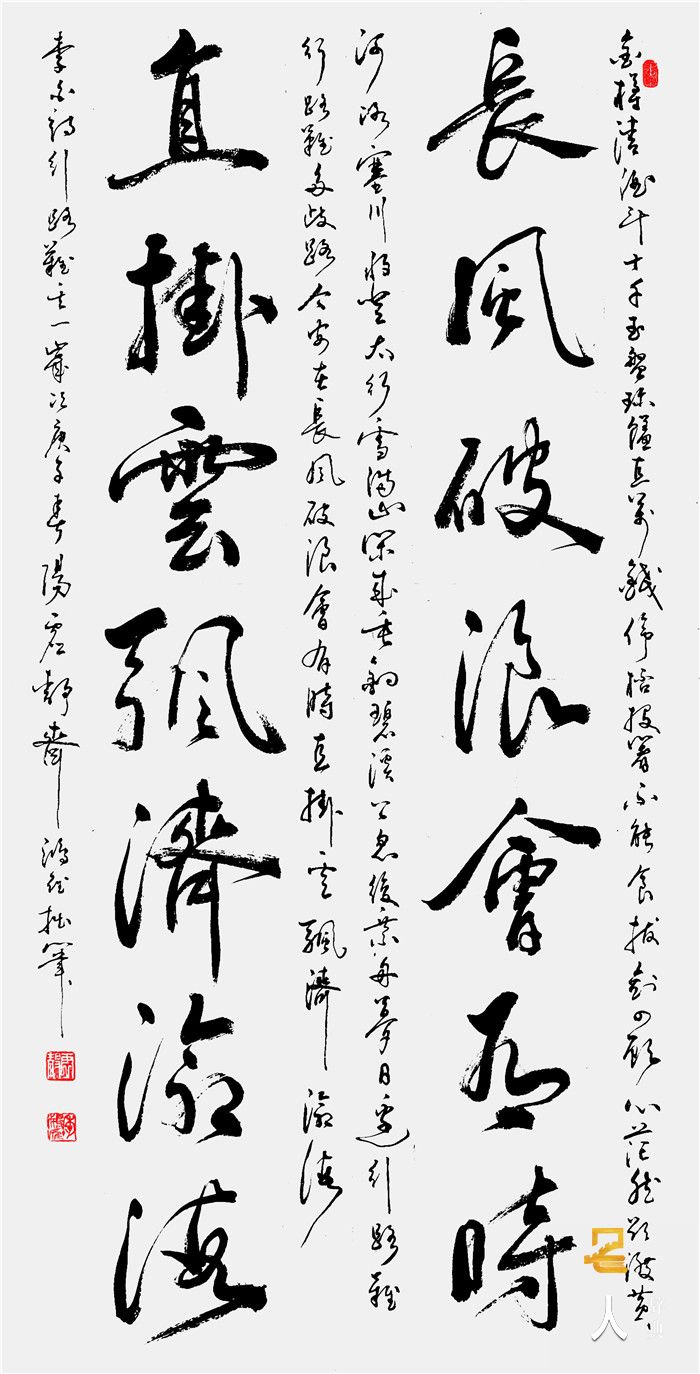 金樽清酒斗十千玉盤珍饈直萬錢停桮投箸不能食拔劍四顧心茫然欲渡黃
長風破浪會有時
河冰塞川將登太行雪滿山閑來垂釣碧溪上忽復乘舟夢日邊行路難
行路難多歧路今安在長風破浪會有時直掛云颿濟滄海
直掛雲颿濟滄海
李白詩行路難其一歲次庚子春陽虛靜齋鴻拙筆
人